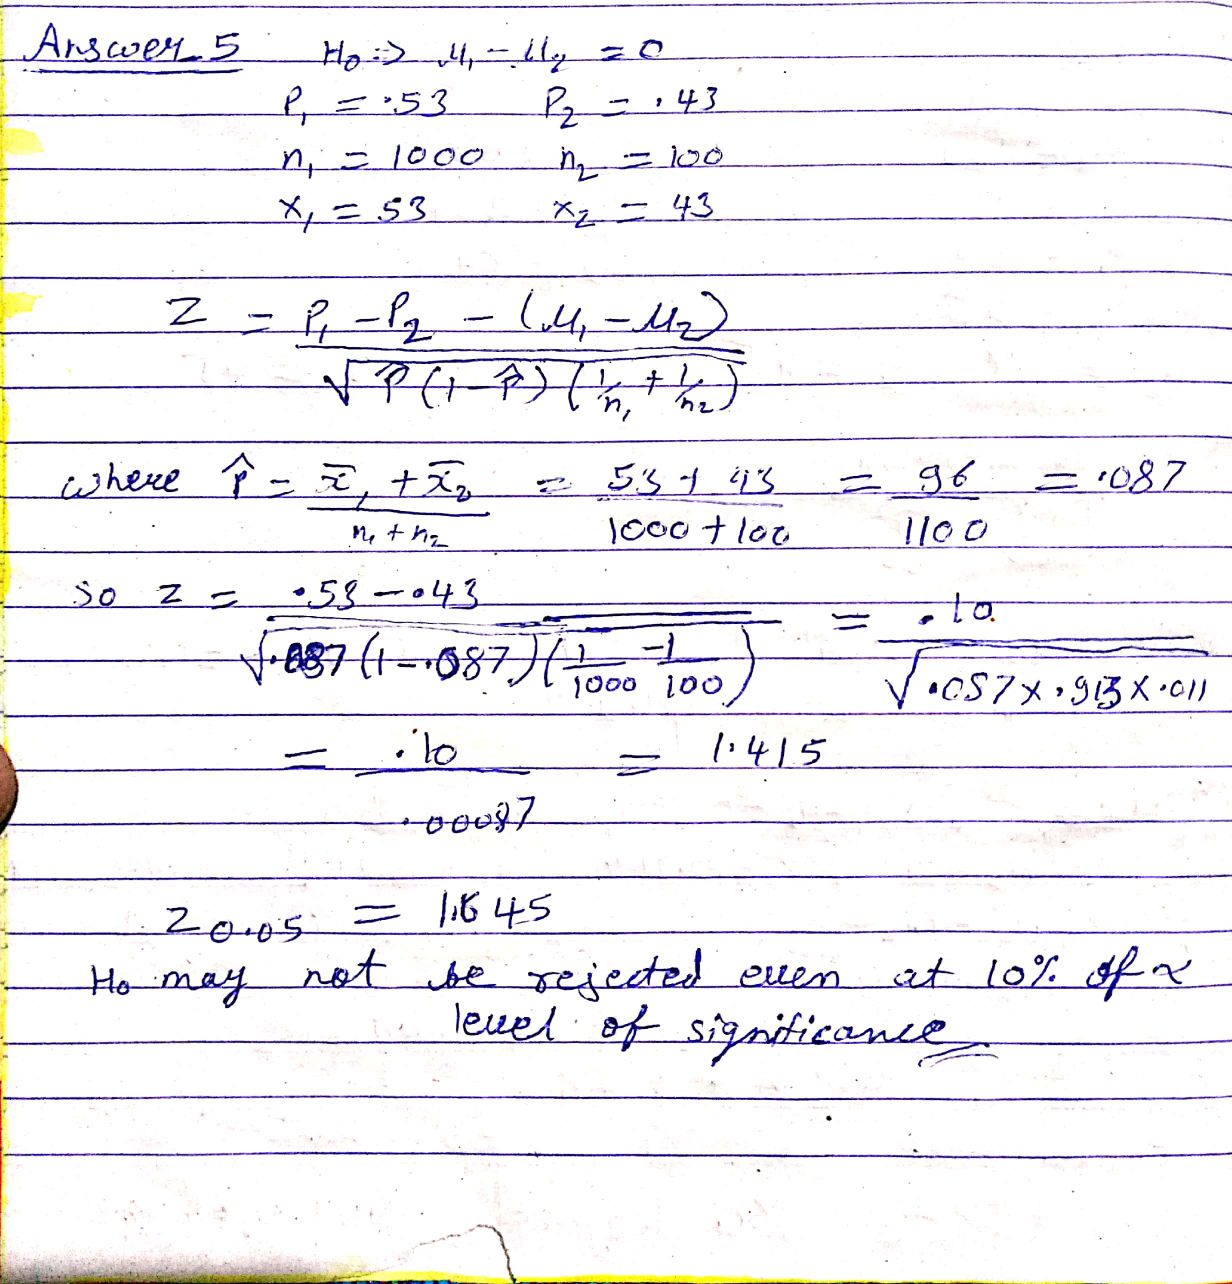 Answer 5 H₀ :⇒ μ₁ - μ₂ = 0
P₁ = .53 P₂ = .43
n₁ = 1000 n₂ = 100
x₁ = 53 x₂ = 43
Z = P₁ - P₂ - (μ₁ - μ₂)
√ P̂ (1 - P̂) (1/n₁ + 1/n₂)
where P̂ = x̄₁ + x̄₂ = 53 + 43 = 96 = .087
n₁ + n₂ 1000 + 100 1100
so z = .53 - .43 = .10
√.087 (1 - .087) (1/1000 - 1/100) √.087 x .913 x .011
= .10 = 1.415
.00087
Z0.05 = 1.645
Ho may not be rejected even at 10% of α
level of significance